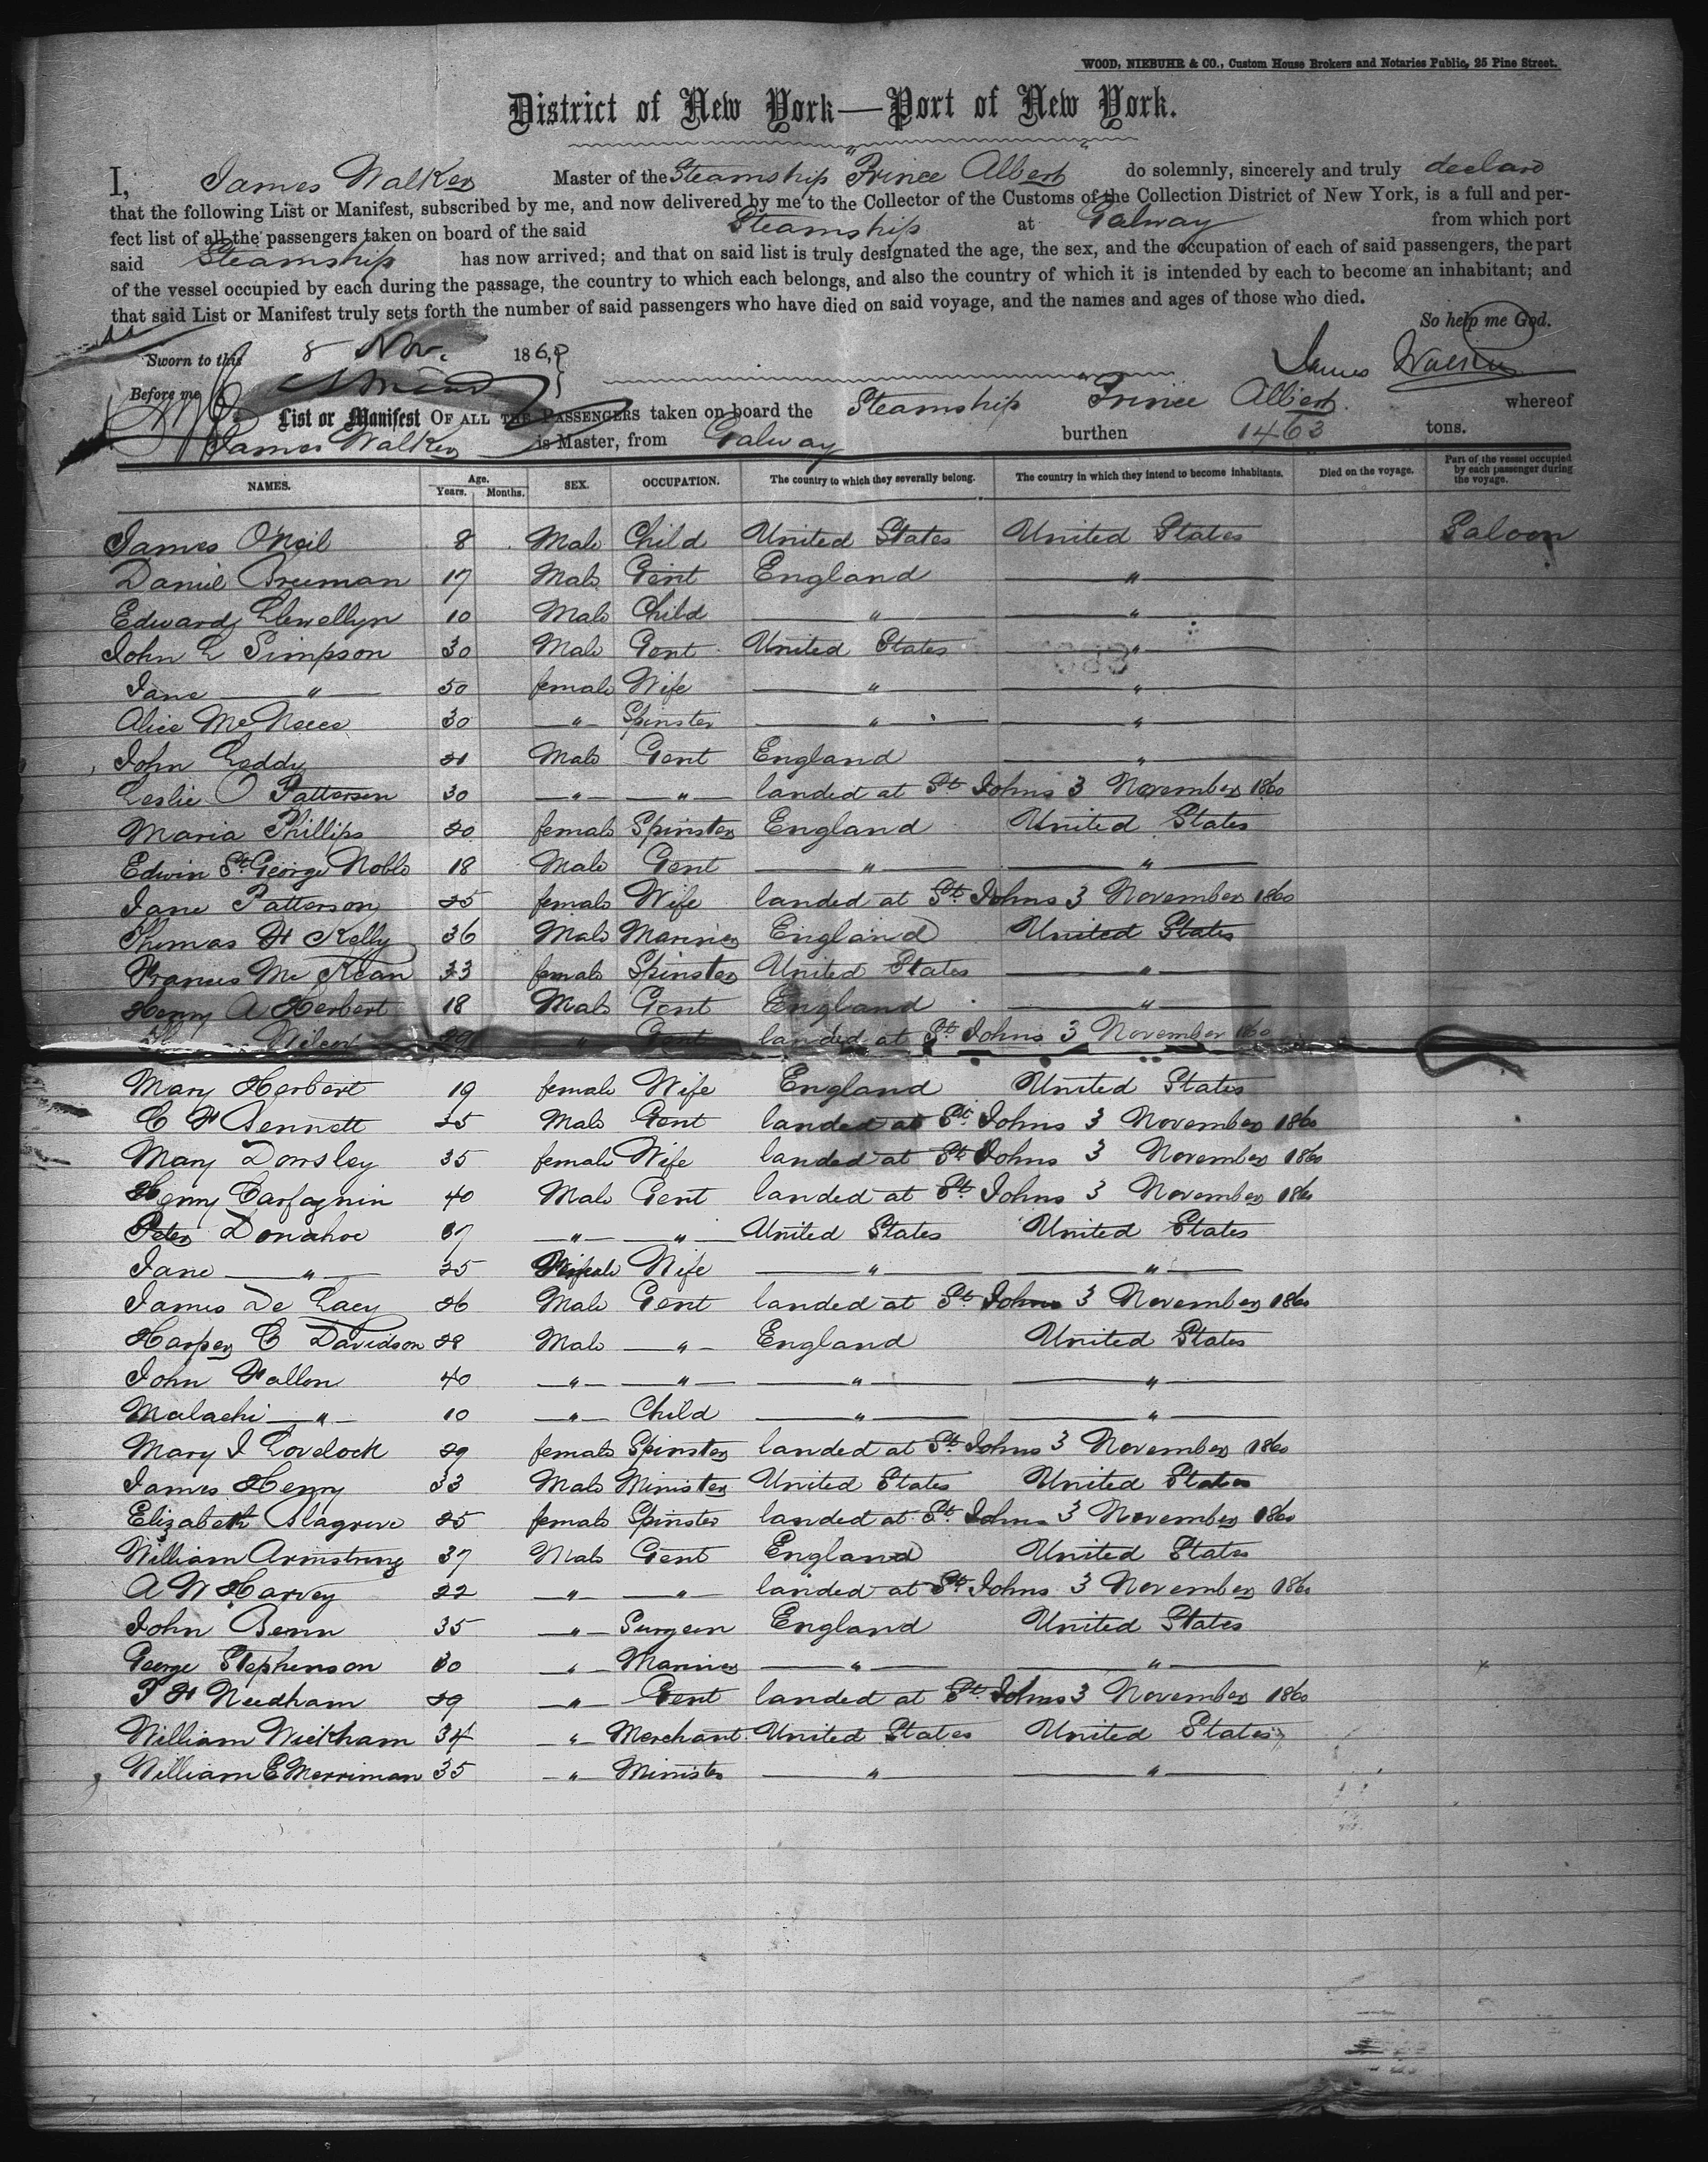 WOOD, NIEBUHR & CO., Custom House Brokers and Notaries Public, 25 Pine Street.
District of New York—Port of New York.
I, James Walker Master of the Steamship "Prince Albert" do solemnly, sincerely and truly declare
that the following List or Manifest, subscribed by me, and now delivered by me to the Collector of the Customs of the Collection District of New York, is a full and per-
fect list of all the passengers taken on board of the said Steamship at Galway from which port
said Steamship has now arrived; and that on said list is truly designated the age, the sex, and the occupation of each of said passengers, the part
of the vessel occupied by each during the passage, the country to which each belongs, and also the country of which it is intended by each to become an inhabitant; and
that said List or Manifest truly sets forth the number of said passengers who have died on said voyage, and the names and ages of those who died.
So help me God.
Sworn to this 8 Nov. 1860 James Walker
Before me
List or Manifest OF ALL THE PASSENGERS taken on board the Steamship "Prince Albert whereof
James Walker is Master, from Galway burthen 1463 tons.
NAMES. Age. Years. Months. SEX. OCCUPATION. The country to which they severally belong. The country in which they intend to become inhabitants. Died on the voyage. Part of the vessel occupied by each passenger during the voyage.
James O'Neil 8 Male Child United States United States Saloon
Daniel Freeman 17 Male Gent England "
Edward Llewellyn 10 Male Child " "
John L Simpson 30 Male Gent United States "
Jane " 50 female Wife " "
Alice McNeece 30 " Spinster " "
John Leddy 21 Male Gent England "
Leslie O Patterson 30 " " landed at St Johns 3 November 1860
Maria Phillips 20 female Spinster England United States
Edwin St George Noble 18 Male Gent " "
Jane Patterson 25 female Wife landed at St Johns 3 November 1860
Thomas H Kelly 36 Male Mariner England United States
Frances McKean 33 female Spinster United States "
Henry A Herbert 18 Male Gent England "
29 " Gent landed at St Johns 3 November 1860
Mary Herbert 19 female Wife England United States
C F Bennett 25 Male Gent landed at St Johns 3 November 1860
Mary Dowsley 35 female Wife landed at St Johns 3 November 1860
Henry Carfagnin 40 Male Gent landed at St Johns 3 November 1860
Peter Donahoe 37 " " United States United States
Jane " 25 Female Wife " "
James De Lacy 26 Male Gent landed at St Johns 3 November 1860
Harper C Davidson 28 Male " England United States
John Fallon 40 " " " "
Malachi " 10 " Child " "
Mary J Lovelock 29 female Spinster landed at St Johns 3 November 1860
James Henry 33 Male Minister United States United States
Elizabeth 25 female Spinster landed at St Johns 3 November 1860
William Armstrong 37 Male Gent England United States
A W Harvey 22 " " landed at St Johns 3 November 1860
John Benn 35 " Surgeon England United States
George Stephenson 30 " Mariner " "
J H Needham 29 " Gent landed at St Johns 3 November 1860
William Wickham 34 " Merchant United States United States
William E Merriman 35 " Minister " "